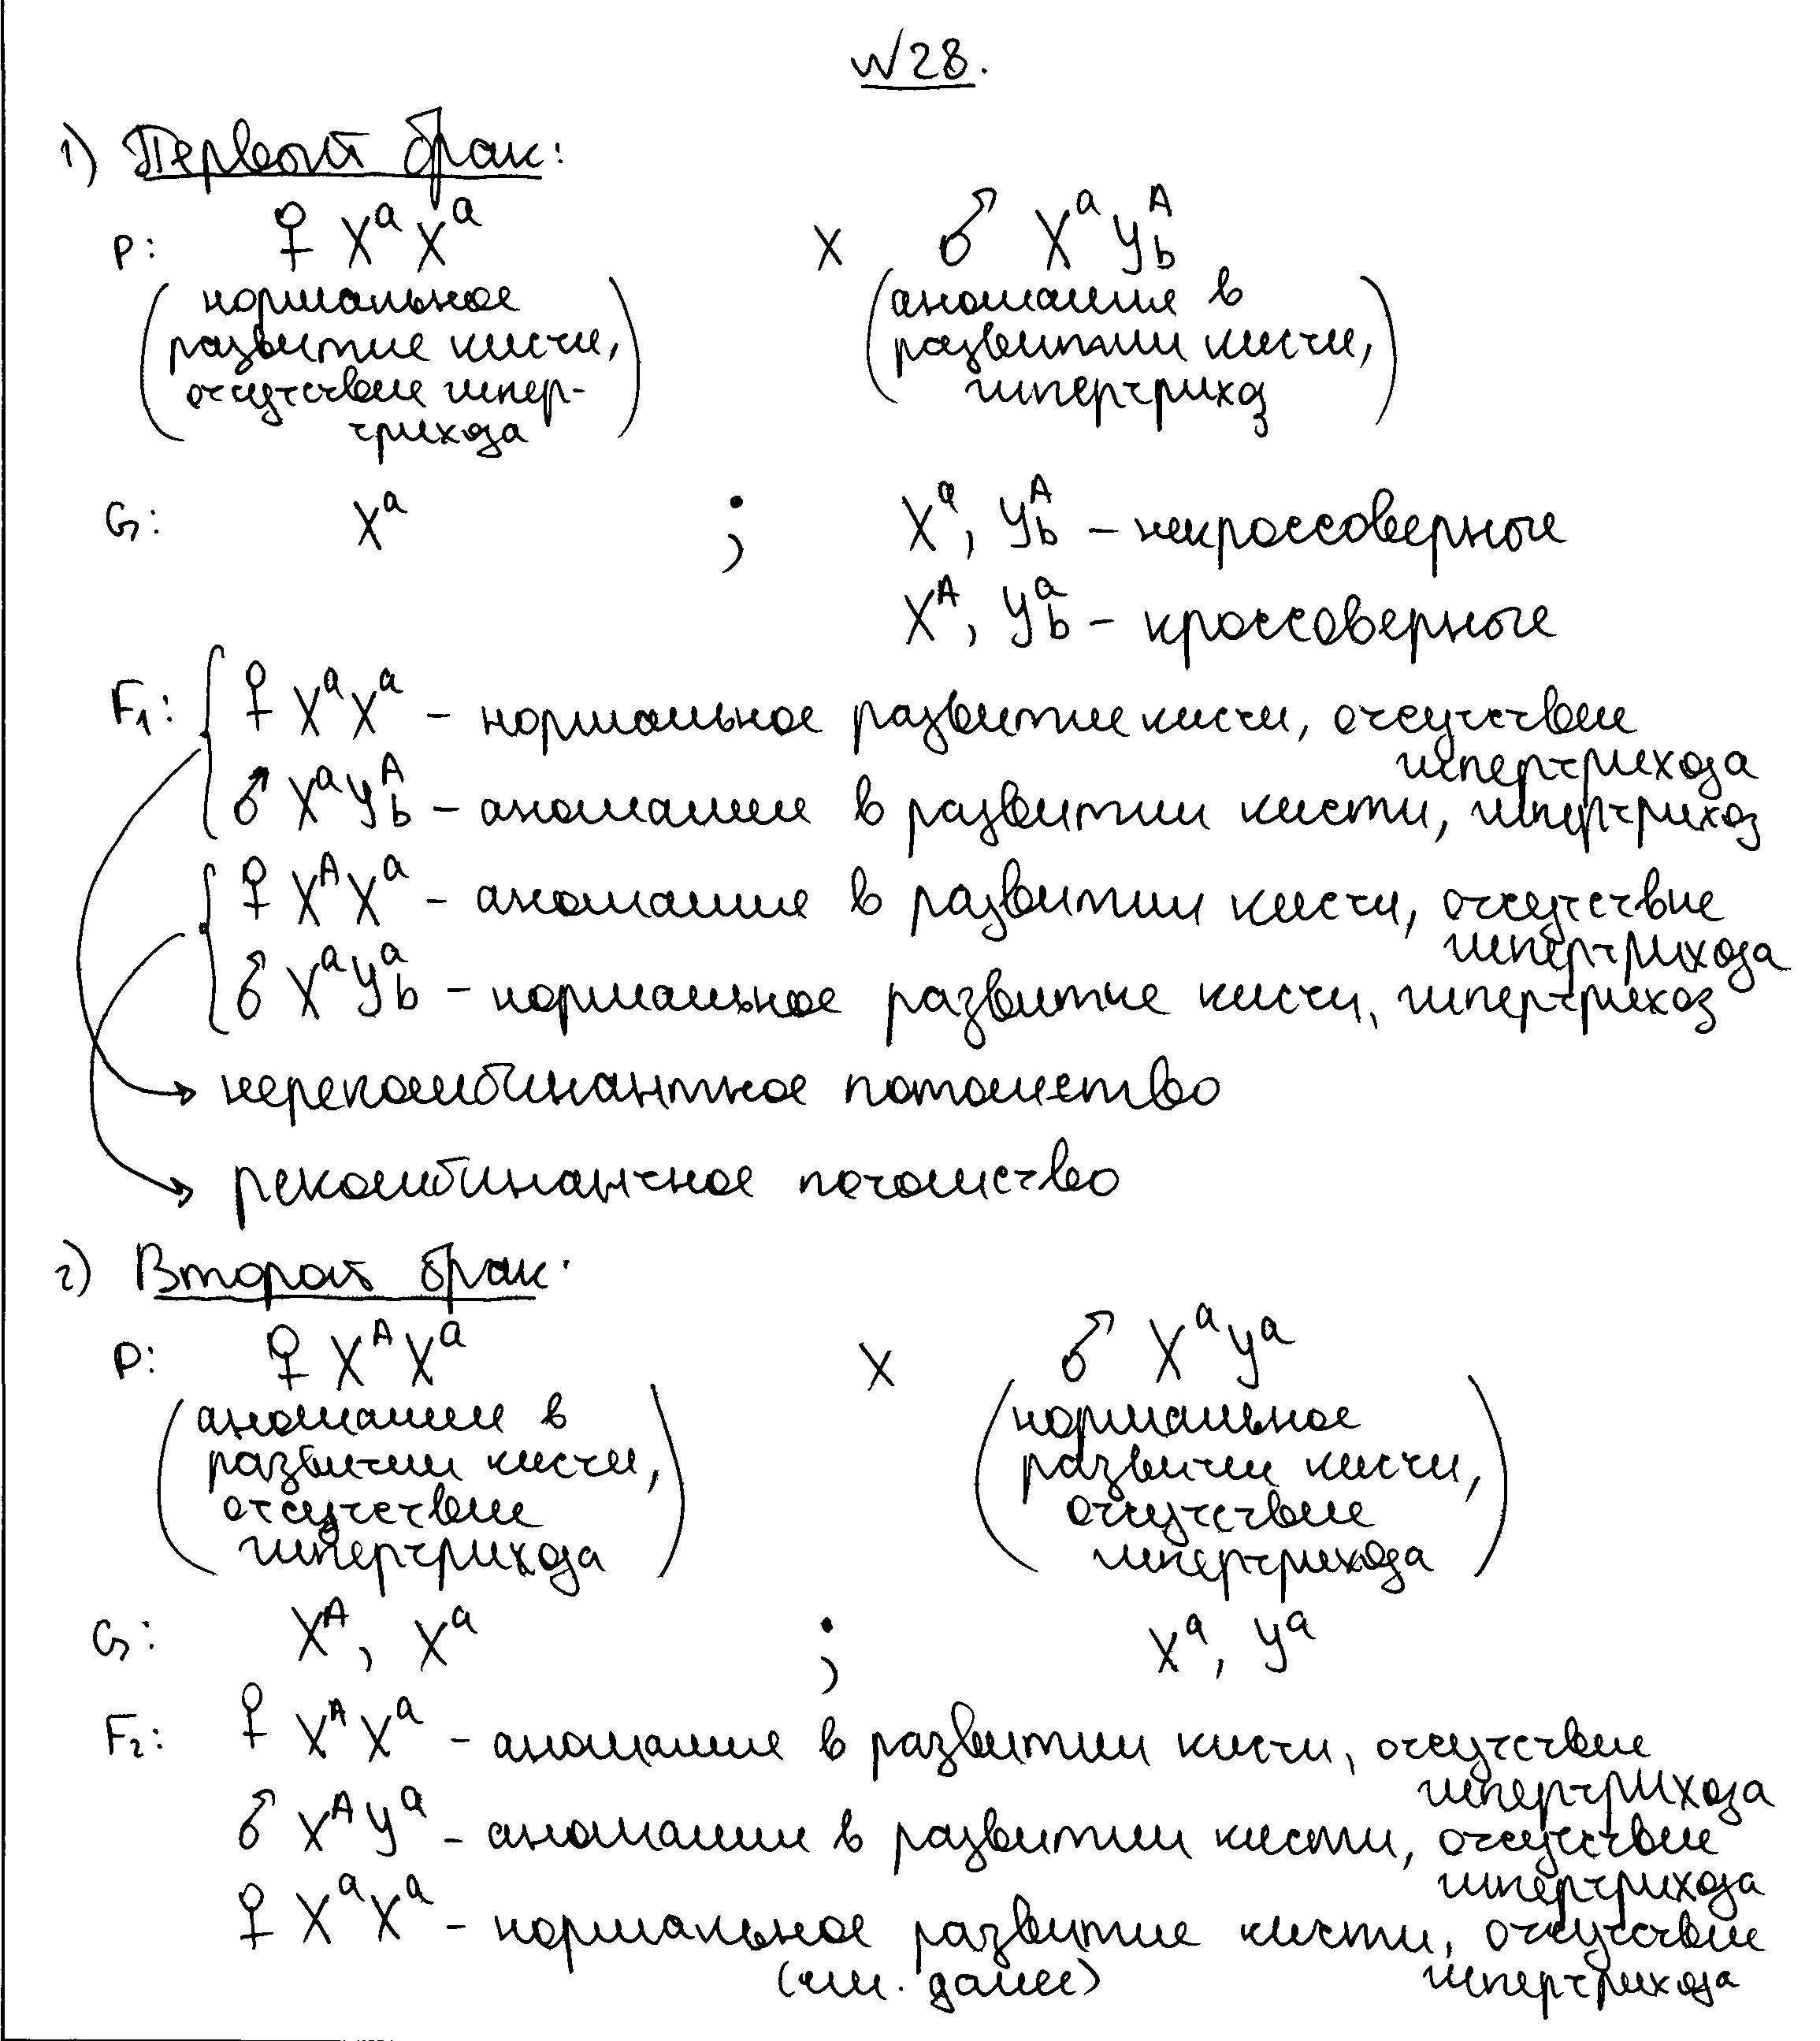 №28.
1) Первый брак:
P: ♀ XᵃXᵃ x ♂ XᵃYᵇᴬ
(нормальное развитие кисти, отсутствие гипертрихоза) (аномалие в развитии кисти, гипертрихоз)
G: Xᵃ ; Xᵃ, Y_b^A – некроссоверные
X^A, Y_b^a – кроссоверные
F₁: ♀ XᵃXᵃ – нормальное развитие кисти, отсутствие
гипертрихоза
♂ XᵃY_b^A – аномалии в развитии кисти, гипертрихоз
♀ X^AXᵃ – аномалие в развитии кисти, отсутствие
гипертрихоза
♂ XᵃY_b^a – нормальное развитие кисти, гипертрихоз
→ нерекомбинантное потомство
→ рекомбинантное потомство
2) Второй брак:
P: ♀ X^AXᵃ x ♂ XᵃYᵃ
(аномалии в развитии кисти, отсутствие гипертрихоза) (нормальное развитии кисти, отсутствие гипертрихоза)
G: X^A, Xᵃ ; Xᵃ, Yᵃ
F₂: ♀ X^AXᵃ – аномалие в развитии кисти, отсутствие
гипертрихоза
♂ X^AYᵃ – аномалии в развитии кисти, отсутствие
гипертрихоза
♀ XᵃXᵃ – нормальное развитие кисти, отсутствие
(см. далее) гипертрихоза